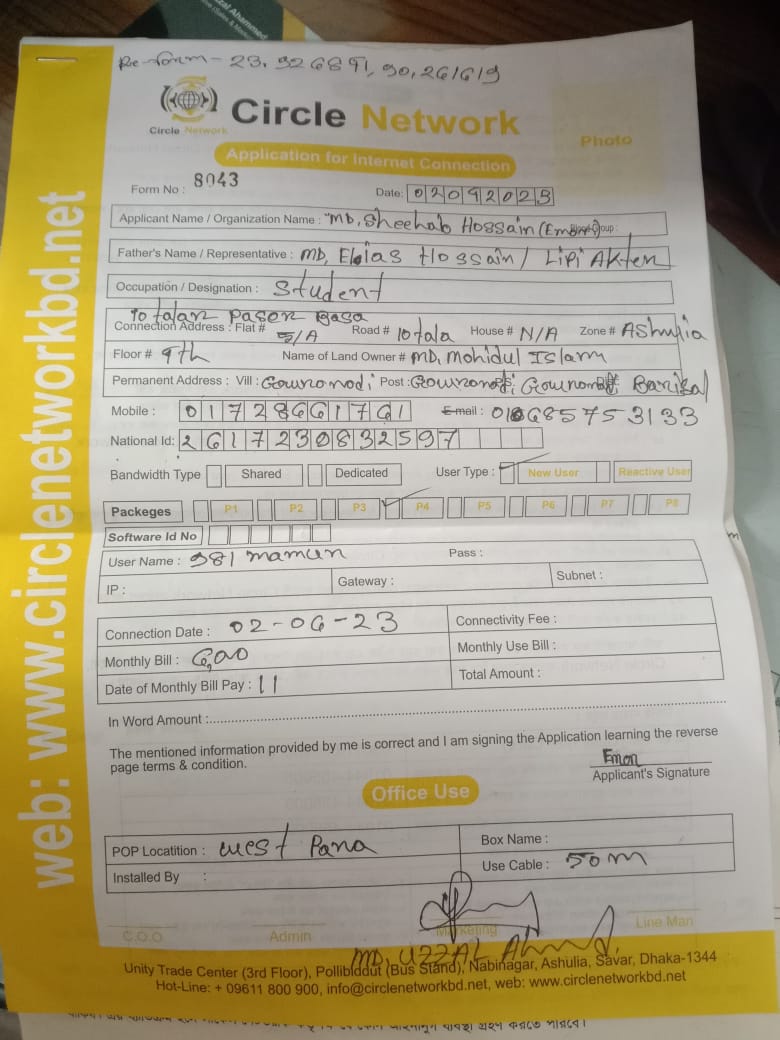 Re-form - 23, 926891, 90, 261619
Circle Network
Circle Network
Application for Internet Connection
Photo
Form No : 8043
Date: 02092023
Applicant Name / Organization Name : "MD, Sheehab Hossain (Emon) Group :
Father's Name / Representative : MD, Elias Hossain / Lipi Akter
Occupation / Designation : Student
10 talar Paser Basa
Connection Address : Flat # 5/A Road # 10 tala House # N/A Zone # Ashulia
Floor # 9th Name of Land Owner # MD, Mohidul Islam
Permanent Address : Vill : Gouronodi Post : Gouronodi, Gouronodi Barisal
Mobile : 01728661761 Email : 01068575 3133
National Id: 2617230832597
Bandwidth Type Shared Dedicated User Type : New User Reactive User
Packeges P1 P2 P3 P4 P5 P6 P7 P8
Software Id No
User Name : 981 mamun Pass :
IP : Gateway : Subnet :
Connection Date : 02-06-23 Connectivity Fee :
Monthly Bill : 600 Monthly Use Bill :
Date of Monthly Bill Pay : 11 Total Amount :
In Word Amount :
The mentioned information provided by me is correct and I am signing the Application learning the reverse
page terms & condition.
Emon
Applicant's Signature
Office Use
POP Locatition : West Para Box Name :
Installed By : Use Cable : 50m
C.O.O Admin Marketing Line Man
MD, UZZAL Ahmed.
Unity Trade Center (3rd Floor), Pollibiddut (Bus Stand), Nabinagar, Ashulia, Savar, Dhaka-1344
Hot-Line: + 09611 800 900, info@circlenetworkbd.net, web: www.circlenetworkbd.net
web: www.circlenetworkbd.net